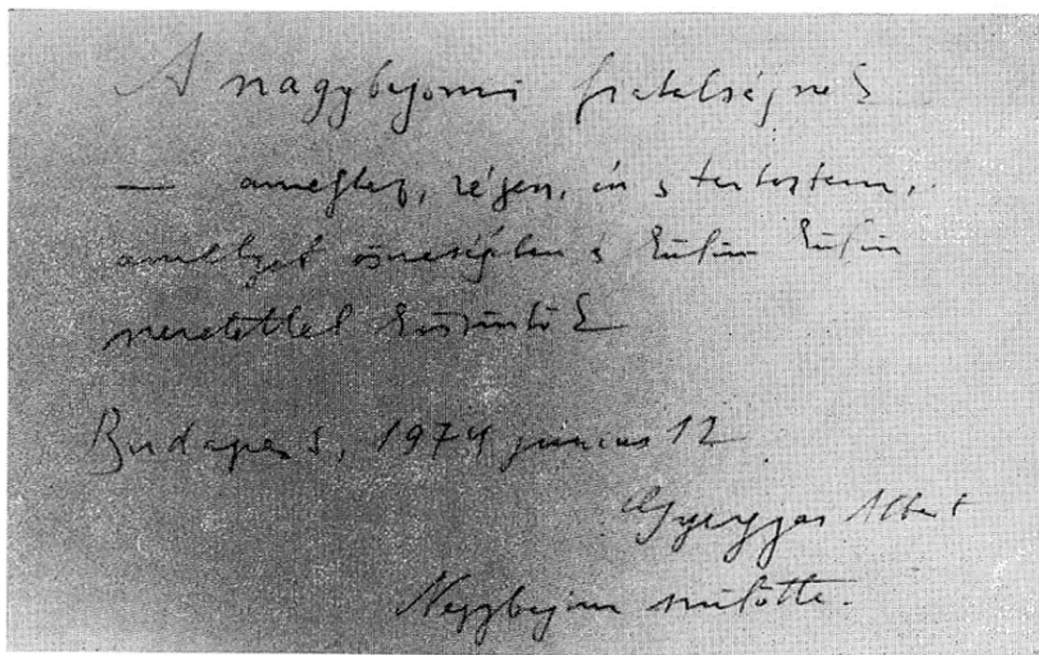 A nagybajomi fiatalságnak
— amelyhez, régen, én is tartoztam,
amelyet őszinteségben és külön külön
szeretettel köszöntök
Budapest, 1974 június 12
Gyergyai Albert
Nagybajom szülötte.